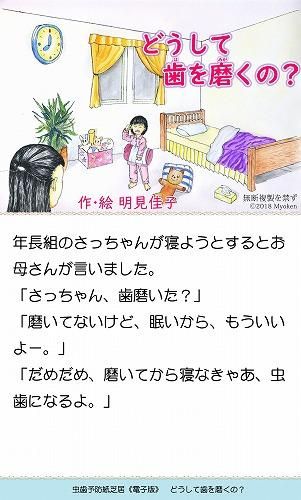 どうして
歯を磨くの？
は
みが
作・絵 明見佳子
無断複製を禁ず
©2018 Myoken
年長組のさっちゃんが寝ようとするとお
母さんが言いました。
「さっちゃん、歯磨いた？」
「磨いてないけど、眠いから、もういい
よー。」
「だめだめ、磨いてから寝なきゃあ、虫
歯になるよ。」
虫歯予防紙芝居《電子版》 どうして歯を磨くの？